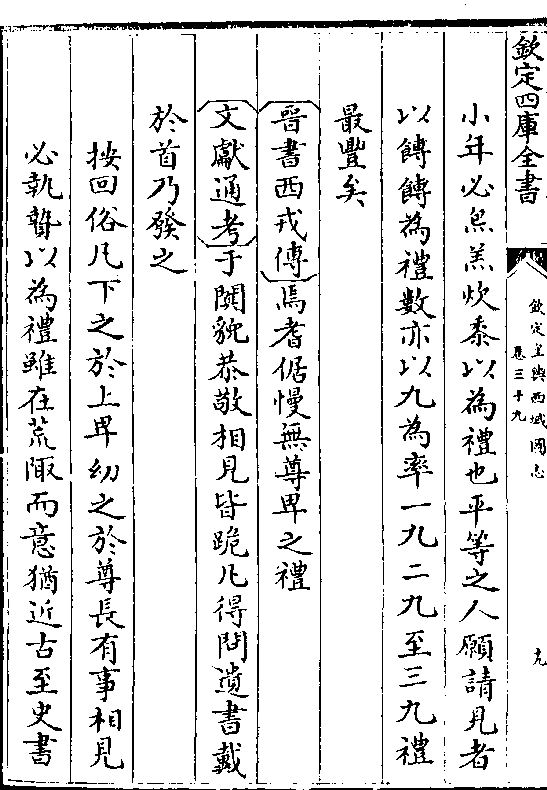 欽定四庫全書
欽定皇輿西域圖志
卷三十九
九
小年必炰羔炊黍以為禮也平等之人願請見者
以餺餺為禮數亦以九為率一九二九至三九禮
最豐矣
晉書西戎傳焉耆倨慢無尊卑之禮
文獻通考于闐貌恭敬相見皆跪凡得問遺書戴
於首乃發之
按回俗凡下之於上卑幼之於尊長有事相見
必執贄以為禮雖在荒陬而意猶近古至史書